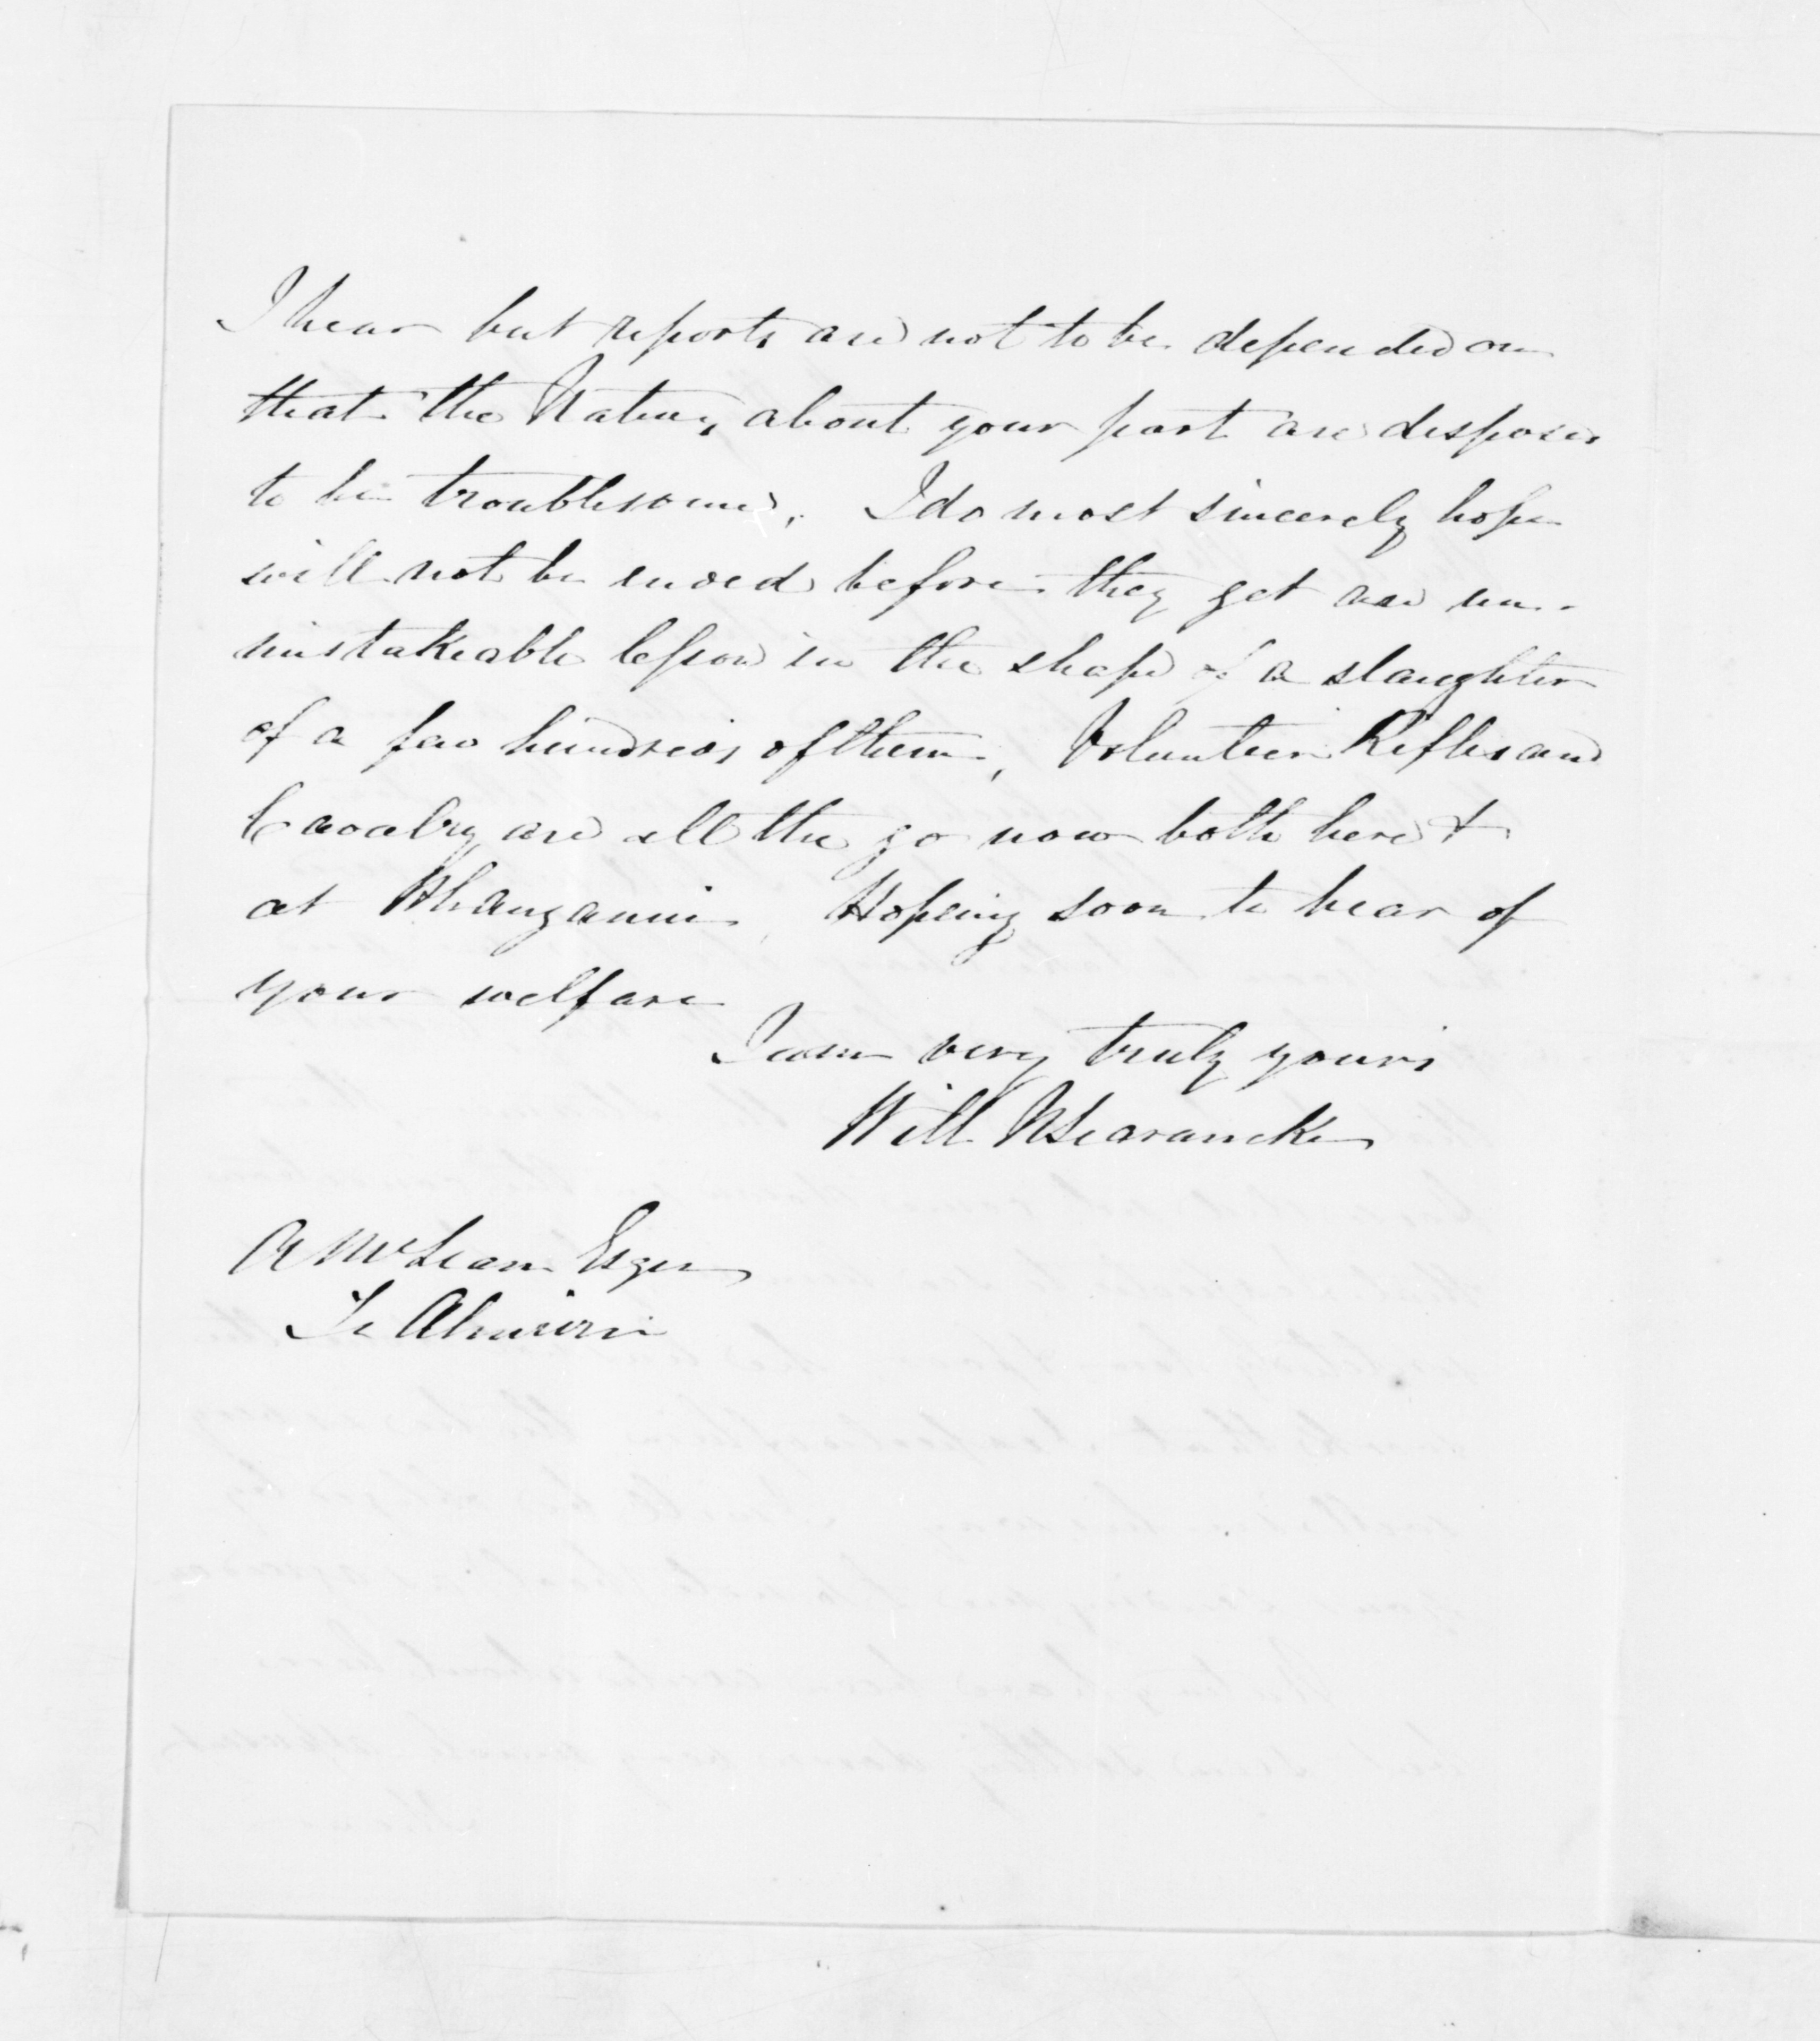 I hear but reports are not to be depended on
that the Natives about your part are disposed
to be troublesome. I do most sincerely hope
will not be ended before they get an un-
mistakeable lesson in the shape of a slaughter
of a few hundreds of them, Volunteer Rifles and
Cavalry are all the go now both here &
at Whanganui. Hoping soon to hear of
your welfare
I am very truly yours
Will N Searancke
A McLean Esqre
Te Ahuriri